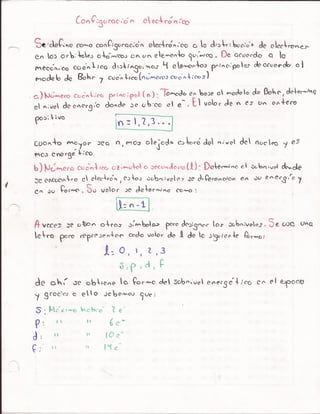 Configuración electrónica
Se define como configuración electrónica a la distribución de electrones
en los orbitales atómicos en un elemento químico. De acuerdo a la
mecánica cuántica distinguimos 4 elementos principales de acuerdo al
modelo de Bohr y cuántico (números cuánticos)
a.) Número cuántico principal (n): Tomado en base al modelo de Bohr, determina
el nivel de energía donde se ubica el e⁻. El valor de n es un entero
positivo
n = 1,2,3...
Cuanto mayor sea n, mas alejado estará del nivel del nucleo y es
mas energético.
b) Número cuántico azimutal o secundario (l): Determina el subnivel donde
se encuentra el electrón, estos subniveles se diferencian en su energía y
en su forma. Su valor se determina como:
l = n - 1
A veces se utilizan otros símbolos para designar los subniveles. Se usa una
letra para representar cada valor de l de la siguiente forma:
l: 0, 1, 2, 3
s, p, d, f
de ahí se obtiene la forma del subnivel energético en el espacio
y gracias a ello sabemos que:
S: Máximo habra 2 e⁻
p: " " 6 e⁻
d: " " 10 e⁻
f: " " 14 e⁻